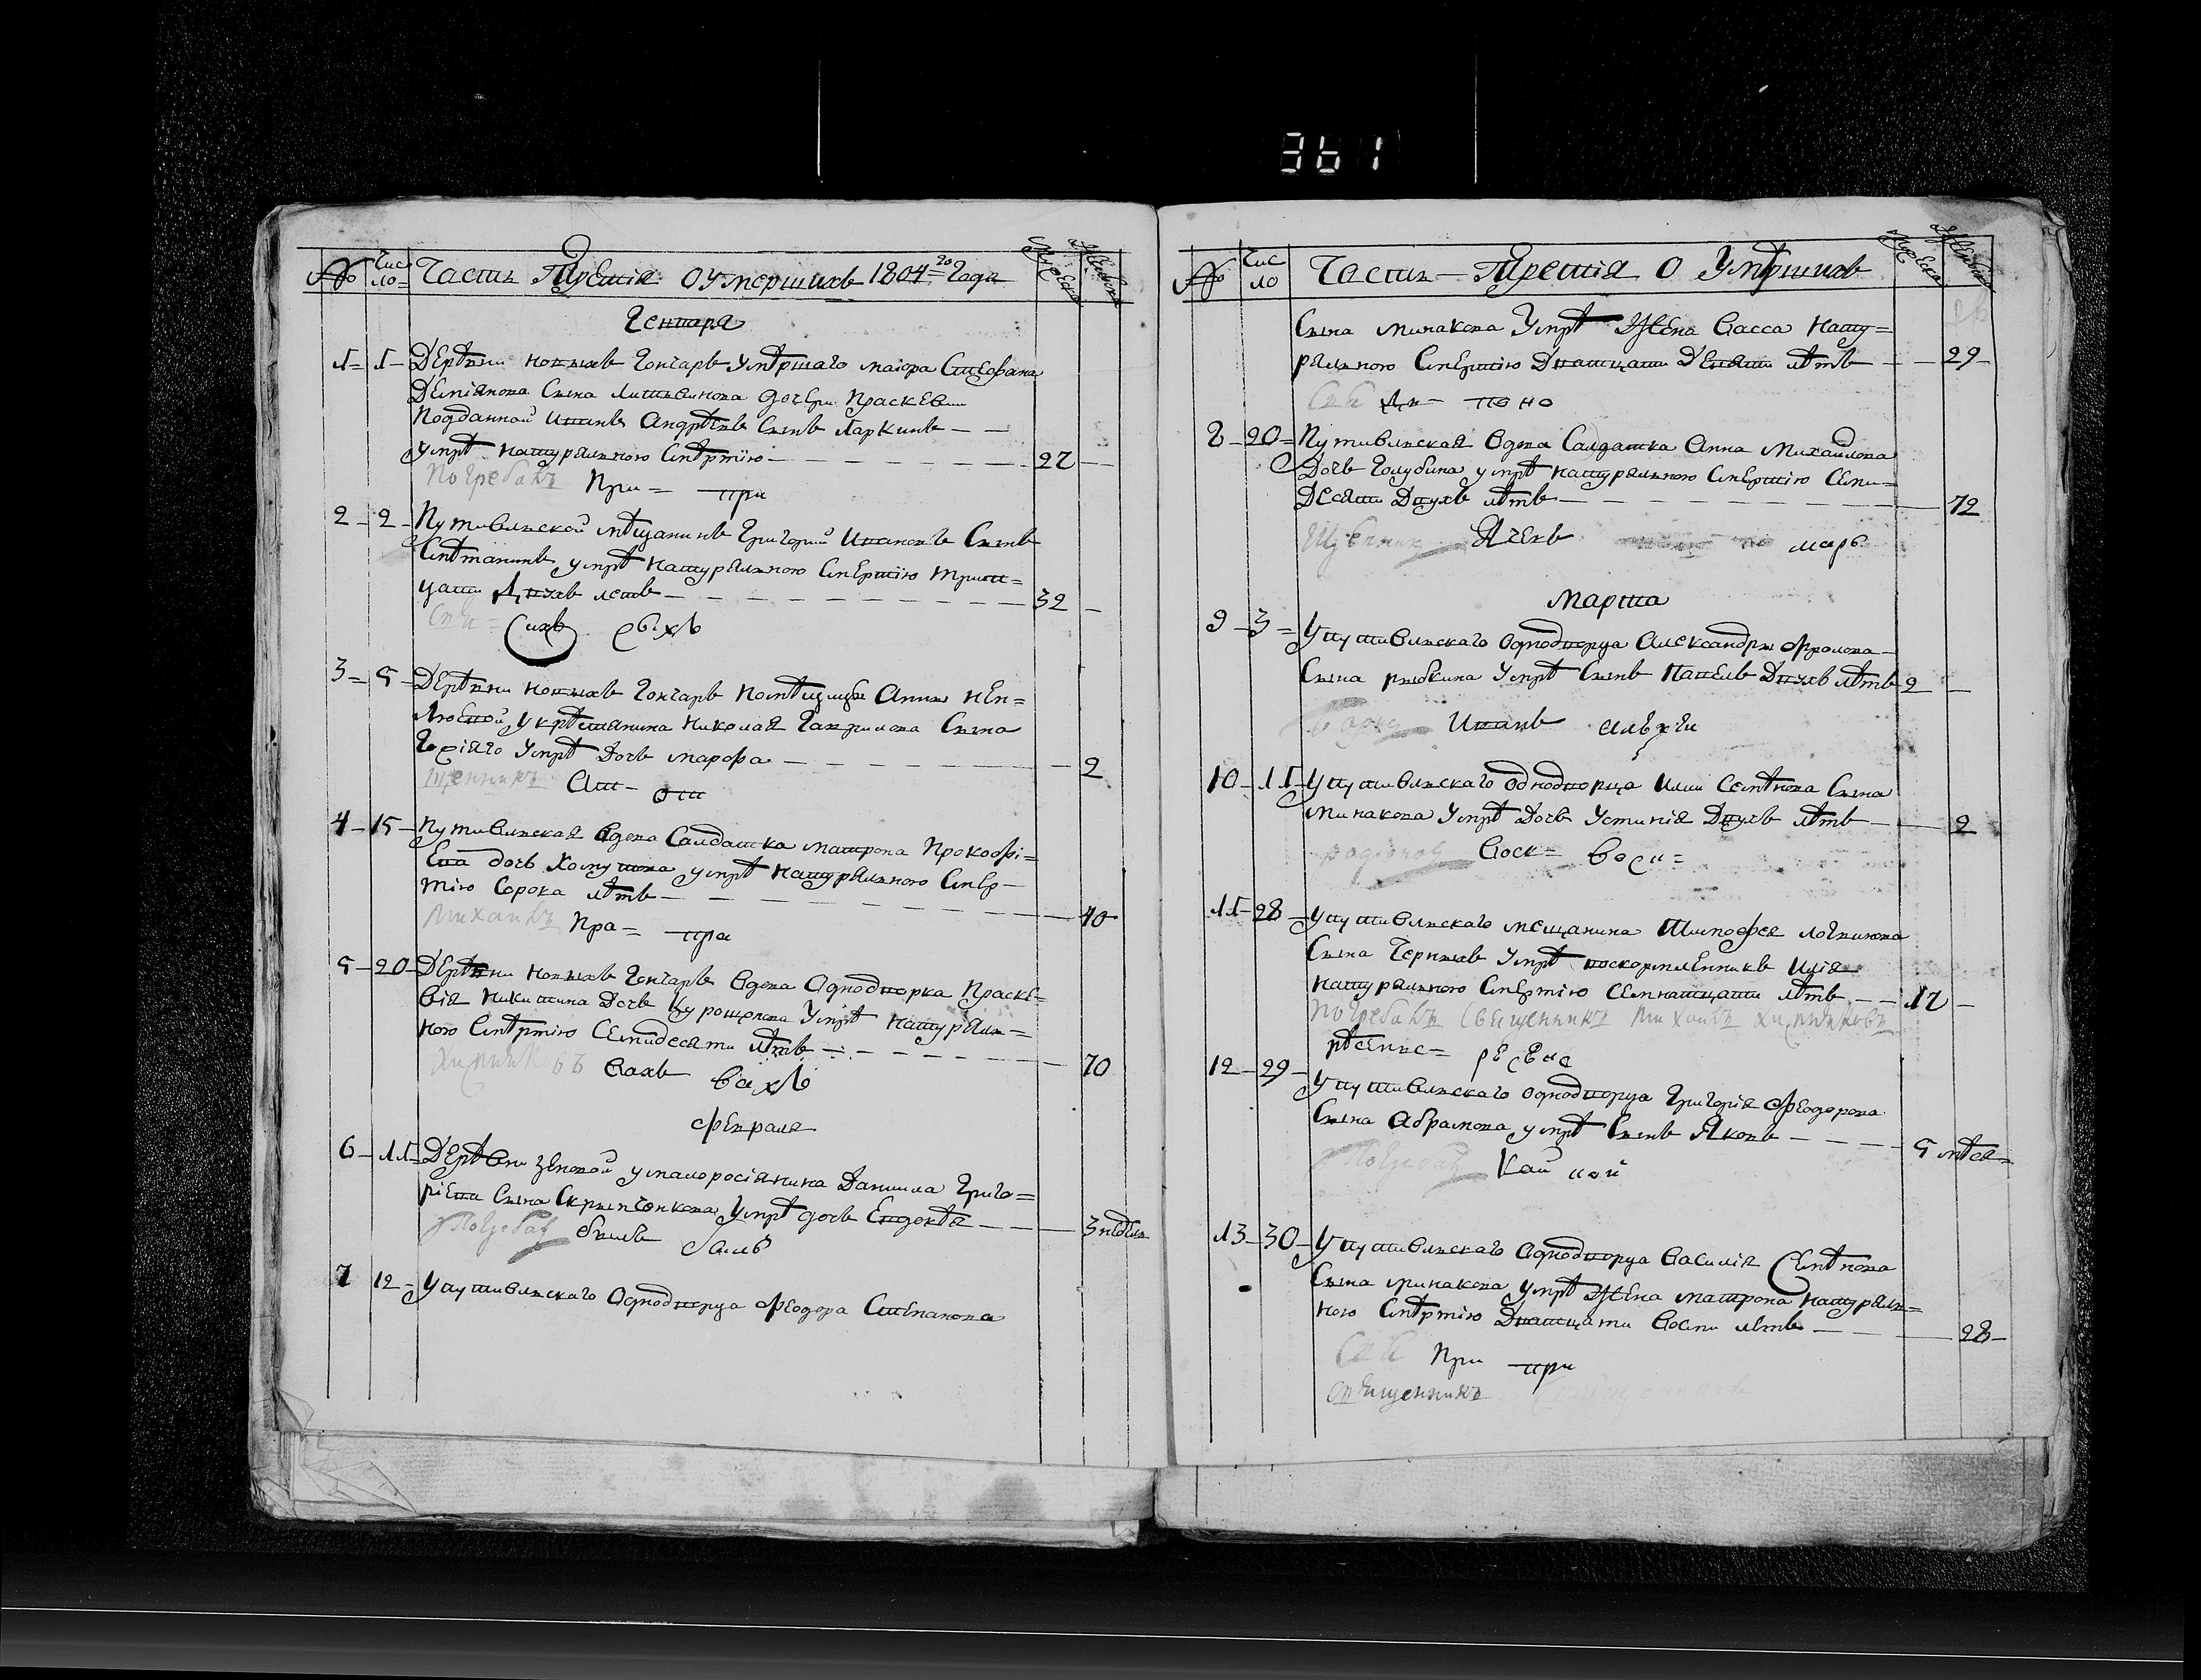 361
№ Число Часть Третія о умершихъ 1804=го Года Мужеска Женска
Генваря
1 = 1 - Деревни новыхъ Гончаръ умѣршаго маіора Стефана
Деміянова Сына Литвинова дочери Праскевіи
Подданной Иванъ Андрѣевъ Сынъ Ларкинъ
умрѣ натуральною Смѣртїю 27
Погребалъ При = при
2 - 2 - Путивльской мѣщанинъ Григорий Ивановъ Сынъ
Смѣтанинъ умрѣ натуральною Смертїю трит=
цати Двухъ летъ 32
Сихъ
3 = 5 - Деревни новыхъ Гончаръ помѣщицы Анны Неп=
люевой у крѣстянина Николая Гаврилова Сына
умрѣ Дочь марфа 2
щенникъ От- от
4 - 15 - Путивльская вдова Салдатка матрона Прокофі=
ева дочь Хомутова умрѣ натуральною Смер-
тію Сорока лѣтъ 40
Михаилъ Пра = пра
5 - 20 - Деревни новыхъ Гончаръ вдова Однодворка Праске=
вія Никитина Дочь умрѣ натураль=
ною Смѣртію Семидесяти лѣтъ 70
Вахъ вахъ
Февраля
6 - 11 - Деревни Зеновой у малоросіянина Даниила Григо=
ріева Сына Скрыпченкова умрѣ дочь Евдокѣя 3 недѣли
Погребал былъ былъ
7 12 - У путивльскаго Однодворца Феодора Степанова
№ Число Часть - Третія о Умѣршихъ Мужеска Женска
Сына минакова Умрѣ Жена Васса нату=
ральною Смертїю Дватцати Девяти лѣтъ 29
но
8 - 20 = Путивльская вдова Салдатка Анна Михайлова
Дочь Голубина умрѣ натуральною Смертїю Семи=
десяти Двухъ лѣтъ 72
Щенник
Марта
9 - 3 = У путивльскаго Однодворца Александры Фролова
Сына рыбкина Умрѣ Сынъ Павелъ Двухъ лѣтъ 2
Иванъ
10 - 11 - У путивльскаго Однодворца Илии Семѣнова Сына
минакова Умрѣ Дочь Устинія Двухъ лѣтъ 2
родіоновъ Воск=
11 - 28 - У путивльскаго мещанина Тимофея логвинова
Сына Черныхъ Умрѣ воскормленникъ Илія
натуральною Смертію Семнатцати лѣтъ 17
Погребалъ Священникъ Михаилъ
12 - 29 - У путивльскаго Однодворца Григорія Феодорова
Сына Абрамова умрѣ Сынъ Яковъ 5 мѣся=
Погребал Кой кой
13 - 30 - У путивльскаго Однодворца Василія Семѣнова
Сына минакова умрѣ Жена матрона натураль=
ною Смѣртію Дватцати Восми лѣтъ 28
При при
священникъ